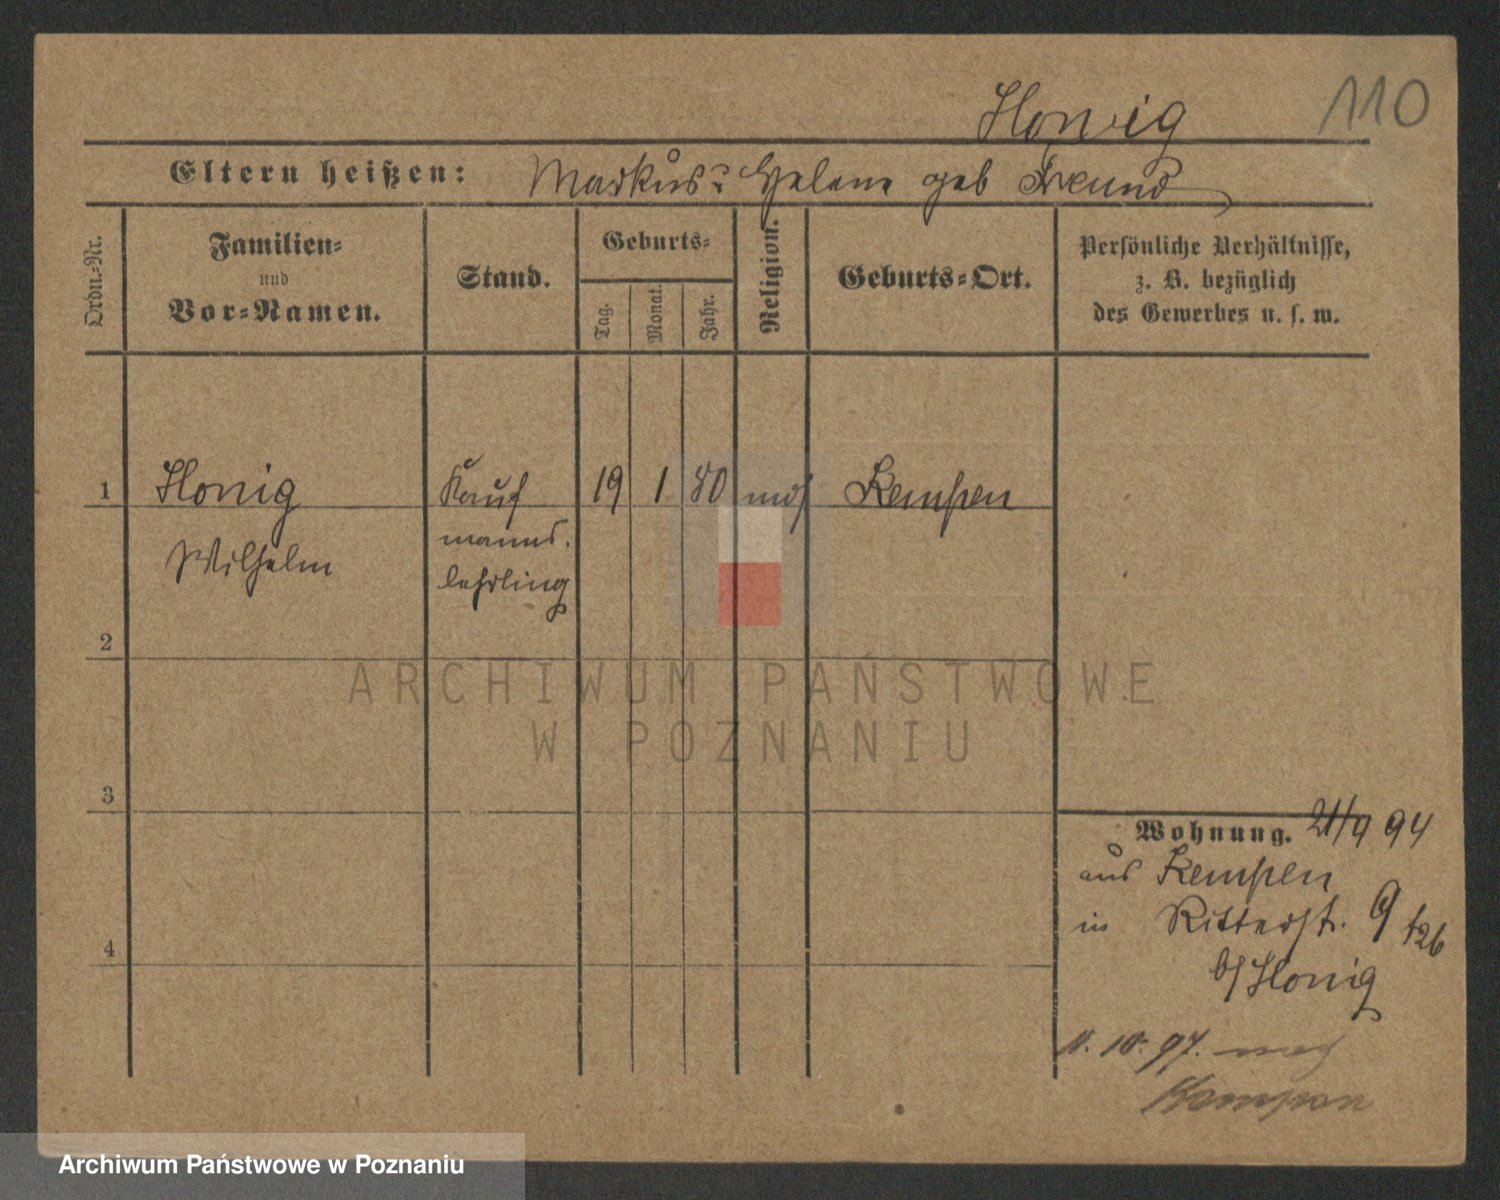 Honig
110
Eltern heißen: Markus u. Helene geb Freund
Ordn.=Nr.
Familien=
und
Vor=Namen.
Stand.
Geburts=
Tag.
Monat.
Jahr.
Religion.
Geburts=Ort.
Persönliche Verhältnisse,
z. B. bezüglich
des Gewerbes u. s. w.
1 Honig Kauf 19 1 80 mos Kempen
Wilhelm
manns.
lehrling
2
3
4
Wohnung. 21/9 94
aus Kempen
in Ritterstr. 9
b/Honig
10. 97. nach
Kempen
ARCHIWUM PAŃSTWOWE
W POZNANIU
Archiwum Państwowe w Poznaniu